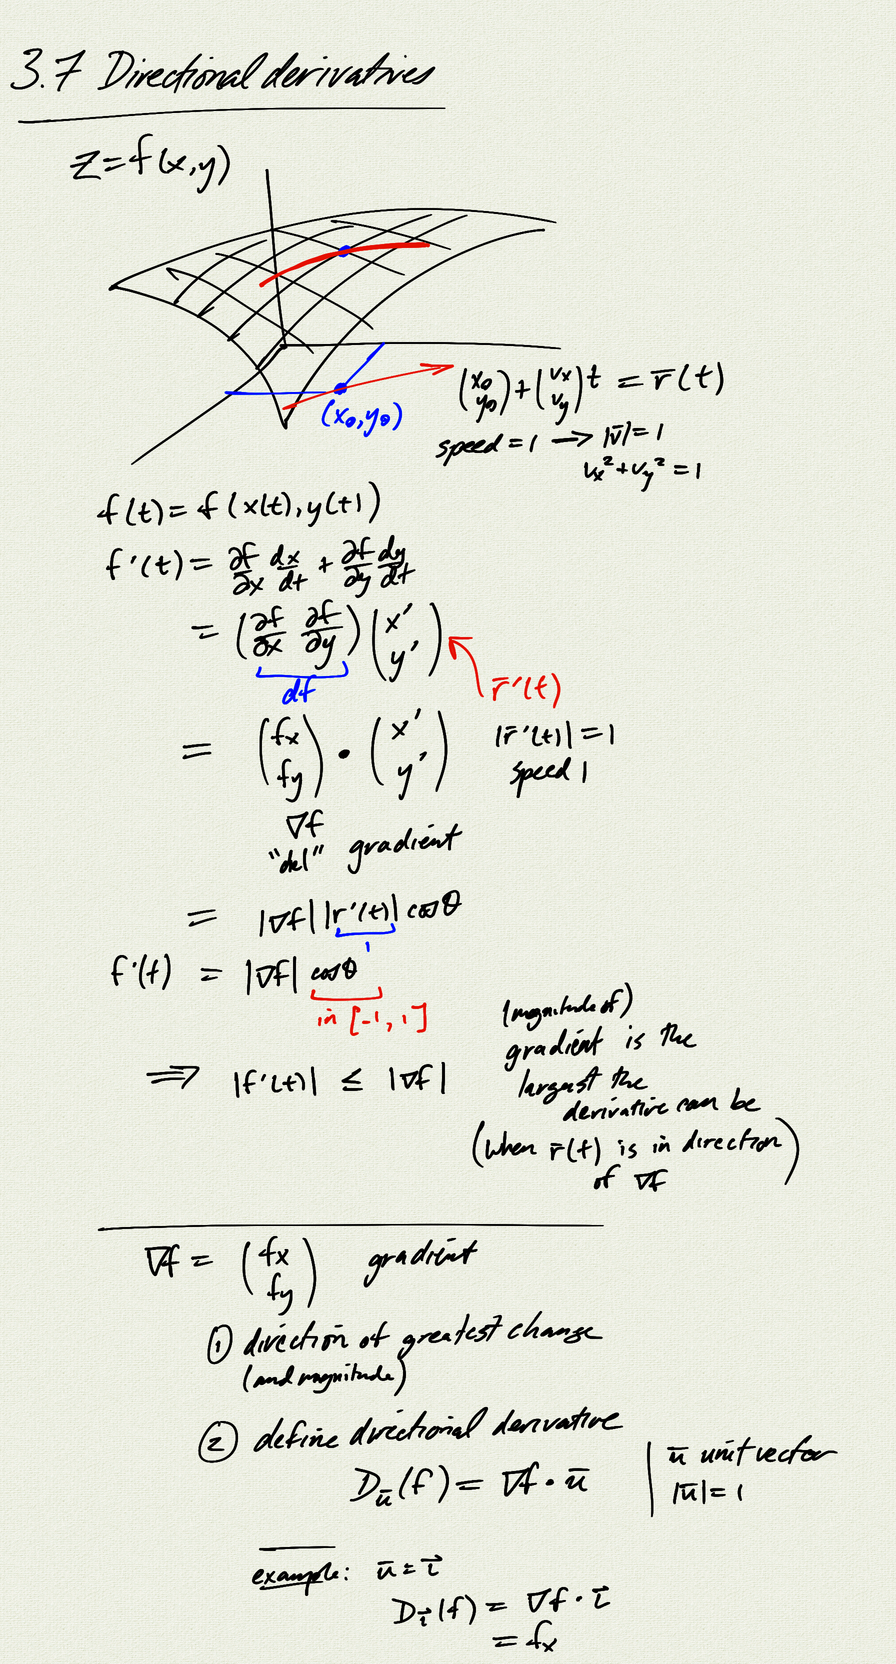 3.7 Directional derivatives
z=f(x,y)
(x₀ y₀)+(vₓ v_y)t = r̄(t)
(x₀,y₀)
speed=1 → |v̄|=1
vₓ²+v_y²=1
f(t)=f(x(t),y(t))
f'(t)= ∂f/∂x dx/dt + ∂f/∂y dy/dt
= (∂f/∂x ∂f/∂y)(x' y')
df
r̄'(t)
= (fx fy) • (x' y')
|r̄'(t)|=1
speed 1
∇f
"del" gradient
= |∇f||r'(t)|cosθ
1
f'(t) = |∇f| cosθ
in [-1,1]
⟹ |f'(t)| ≤ |∇f|
(magnitude of)
gradient is the
largest the
derivative can be
(when r̄(t) is in direction
of ∇f)
∇f = (fx fy) gradient
① direction of greatest change
(and magnitude)
② define directional derivative
D_ū(f) = ∇f • ū
ū unit vector
|ū|=1
example: ū=i⃗
D_i⃗(f) = ∇f • i⃗
= fx